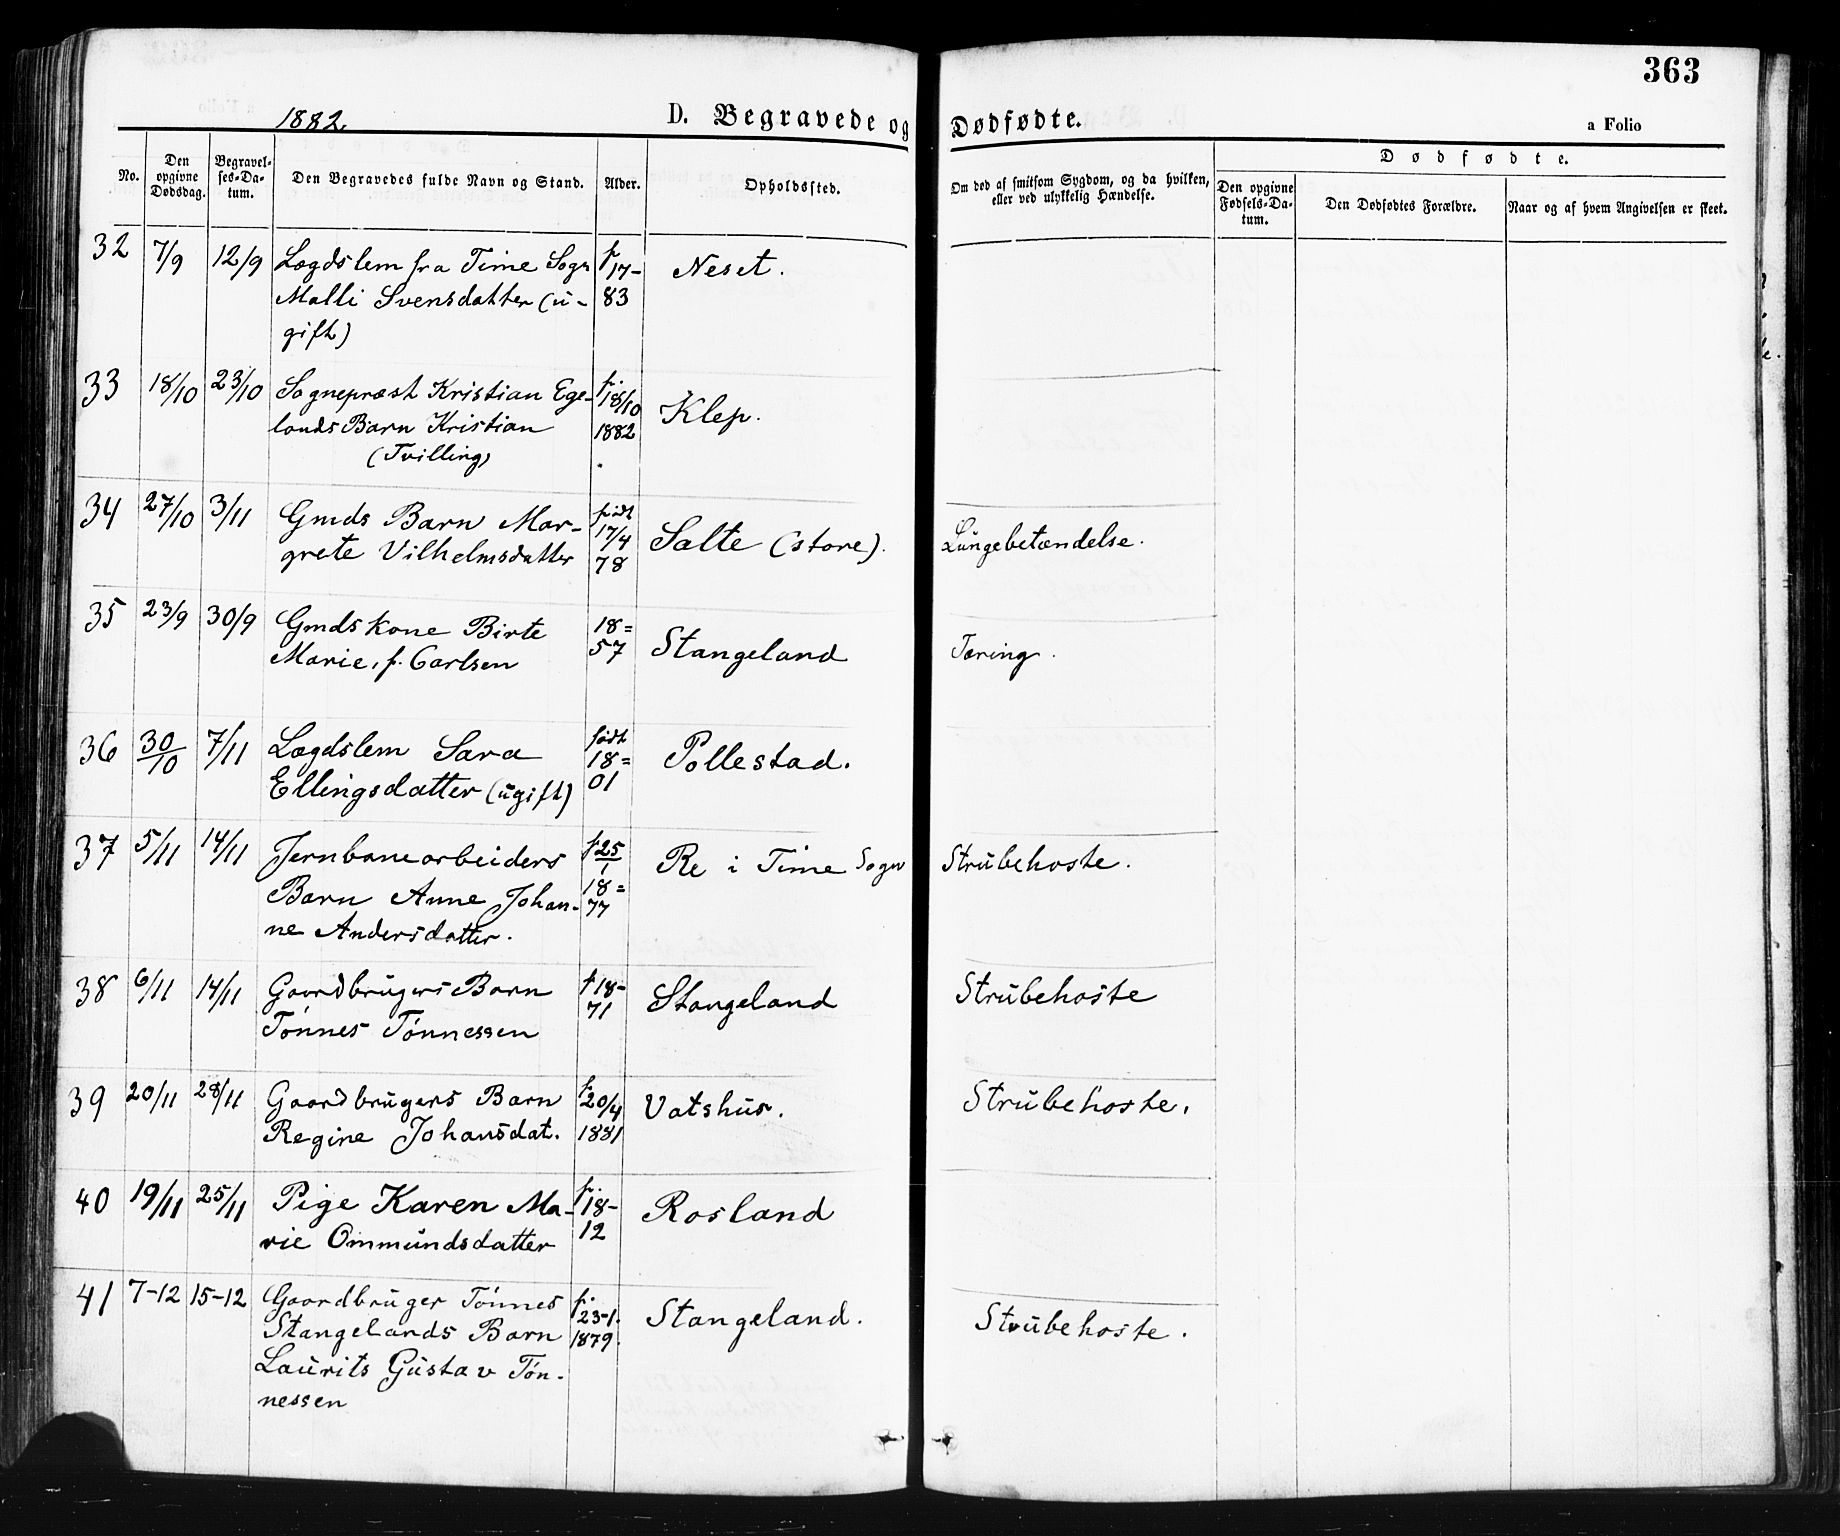 363
1882.
D. Begravede og Dødfødte.
a Folio
No.
Den opgivne Dødsdag.
Begravelses-Datum.
Den Begravedes fulde Navn og Stand.
Alder.
Opholdssted.
Om død af smitsom Sygdom, og da hvilken, eller ved ulykkelig Hændelse.
Dødfødte.
Den opgivne Fødsels-Datum.
Den Dødfødtes Forældre.
Naar og af hvem Angivelsen er skeet.
32 7/9 12/9 Lægdslem fra Time Sogn f. 17- Neset.
Malli Svensdatter (u- 83
gift)
33 18/10 23/10 Sognepræst Kristian Ege- f. 18/10 Klep.
lands Barn Kristian 1882
(Tvilling)
34 27/10 3/11 Gmds Barn Mar- født Salte (store). Lungebetændelse.
grete Vilhelmsdatter 17/4
78
35 23/9 30/9 Gmdskone Birte 18= Stangeland Tæring.
Marie, f. Carlsen 57
36 30/10 7/11 Lægdslem Sara født Pollestad.
Ellingsdatter (ugift) 18=
01
37 5/11 14/11 Jernbanearbeiders f 25/1 Re i Time Sogn Strubehoste.
Barn Anne Johan- 18=
ne Andersdatter. 77
38 6/11 14/11 Gaardbrugers Barn f 18- Stangeland Strubehoste
Tönnes Tönnessen 71
39 20/11 28/11 Gaardbrugers Barn f. 20/4 Vatshus. Strubehoste.
Regine Johansdat. 1881
40 19/11 25/11 Pige Karen Ma- f. 18- Rosland
rie Ommundsdatter 12
41 7-12 15-12 Gaardbruger Tönnes f. 23-1. Stangeland. Strubehoste.
Stangelands Barn 1879.
Laurits Gustav Tön-
nessen